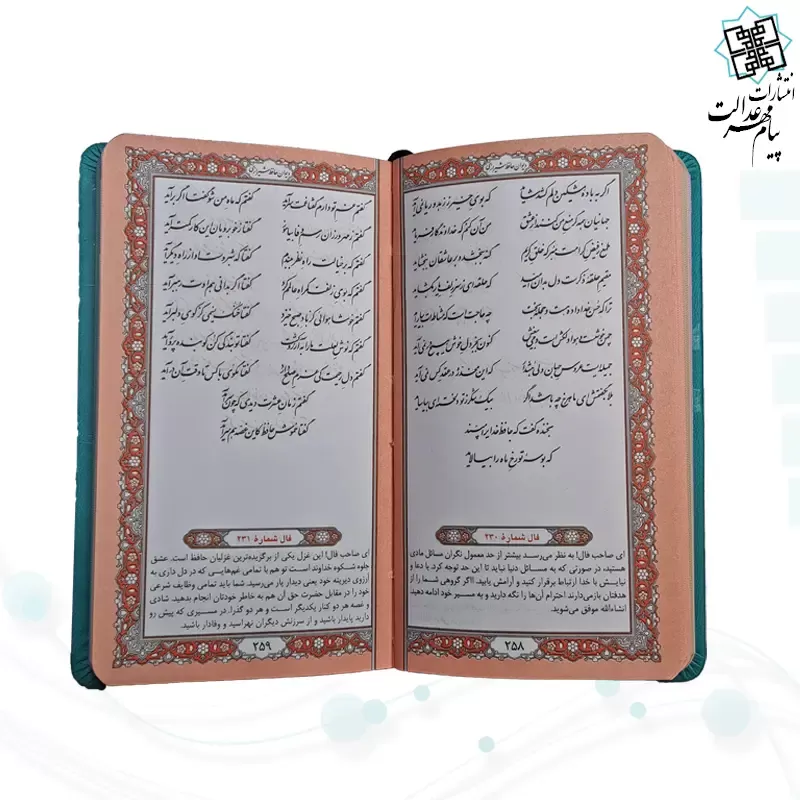 انتشارات
پیام مهر عدالت
دیوان حافظ شیرازی
اگر به باده مشکین دلم کشد شاید که بوی خیر ز زهد و ریا نمی‌آید
جهانیان همه گر منع من کنند از عشق من آن کنم که خداوندگار فرماید
طمع ز فیض کرامت مبر که خلق کریم گنه ببخشد و بر عاشقان ببخشاید
مقیم حلقه ذکر است دل بدان امید که حلقه‌ای ز سر زلف یار بگشاید
ترا که حسن خداداده هست و حجله بخت چه حاجت است که مشاطه‌ات بیاراید
چمن خوش است و هوا دلکش است و می بی‌غش کنون بجز دل خوش هیچ در نمی‌باید
جمیله‌ایست عروس جهان ولی هشدار که این مخدره در عقد کس نمی‌آید
بلابه گفتمش ای ماهرخ چه باشد اگر بیک شکر ز تو دلخسته‌ای بیاساید
بخنده گفت که حافظ خدایرا مپسند
که بوسه تو رخ ماه را بیالاید
فال شمارهٔ ۲۳۰
ای صاحب فال! به نظر می‌رسد بیشتر از حد معمول نگران مسائل مادی
هستید، در صورتی که به مسائل دنیا نباید تا این حد توجه کرد. با دعا و
نیایش با خدا ارتباط برقرار کنید و آرامش یابید. اگر گروهی شما را از
هدفتان بازمی‌دارند احترام آن‌ها را نگه دارید و به مسیر خود ادامه دهید.
انشاءالله موفق می‌شوید.
۲۵۸
دیوان حافظ شیرازی
گفتم غم تو دارم گفتا غمت سرآید گفتم که ماه من شو گفتا اگر برآید
گفتم ز مهرورزان رسم وفا بیاموز گفتا ز خوبرویان این کار کمتر آید
گفتم که بر خیالت راه نظر ببندم گفتا که شبروست او از راه دیگر آید
گفتم که بوی زلفت گمراه عالمم کرد گفتا اگر بدانی هم اوت رهبر آید
گفتم خوشا هوایی کز باد صبح خیزد گفتا خنک نسیمی کز کوی دلبر آید
گفتم که نوش لعلت ما را به آرزو کشت گفتا تو بندگی کن کو بنده پرور آید
گفتم دل رحیمت کی عزم صلح دارد گفتا مگوی با کس تا وقت آن درآید
گفتم زمان عشرت دیدی که چون سرآمد
گفتا خموش حافظ کاین غصه هم سرآید
فال شمارهٔ ۲۳۱
ای صاحب فال! این غزل یکی از برگزیده‌ترین غزلیان حافظ است. عشق
جلوه شکوه خداوند است تو هم با تمامی غم‌هایی که در دل داری به
آرزوی دیرینه خود یعنی دیدار یار می‌رسید. شما باید تمامی وظایف شرعی
خود را در مقابل حضرت حق آن هم به خاطر خودتان انجام بدهید. شادی
و غصه هر دو کنار یکدیگر است و هر دو گذرا. در مسیری که پیش رو
دارید پایدار باشید و از سرزنش دیگران نهراسید و وفادار باشید.
۲۵۹